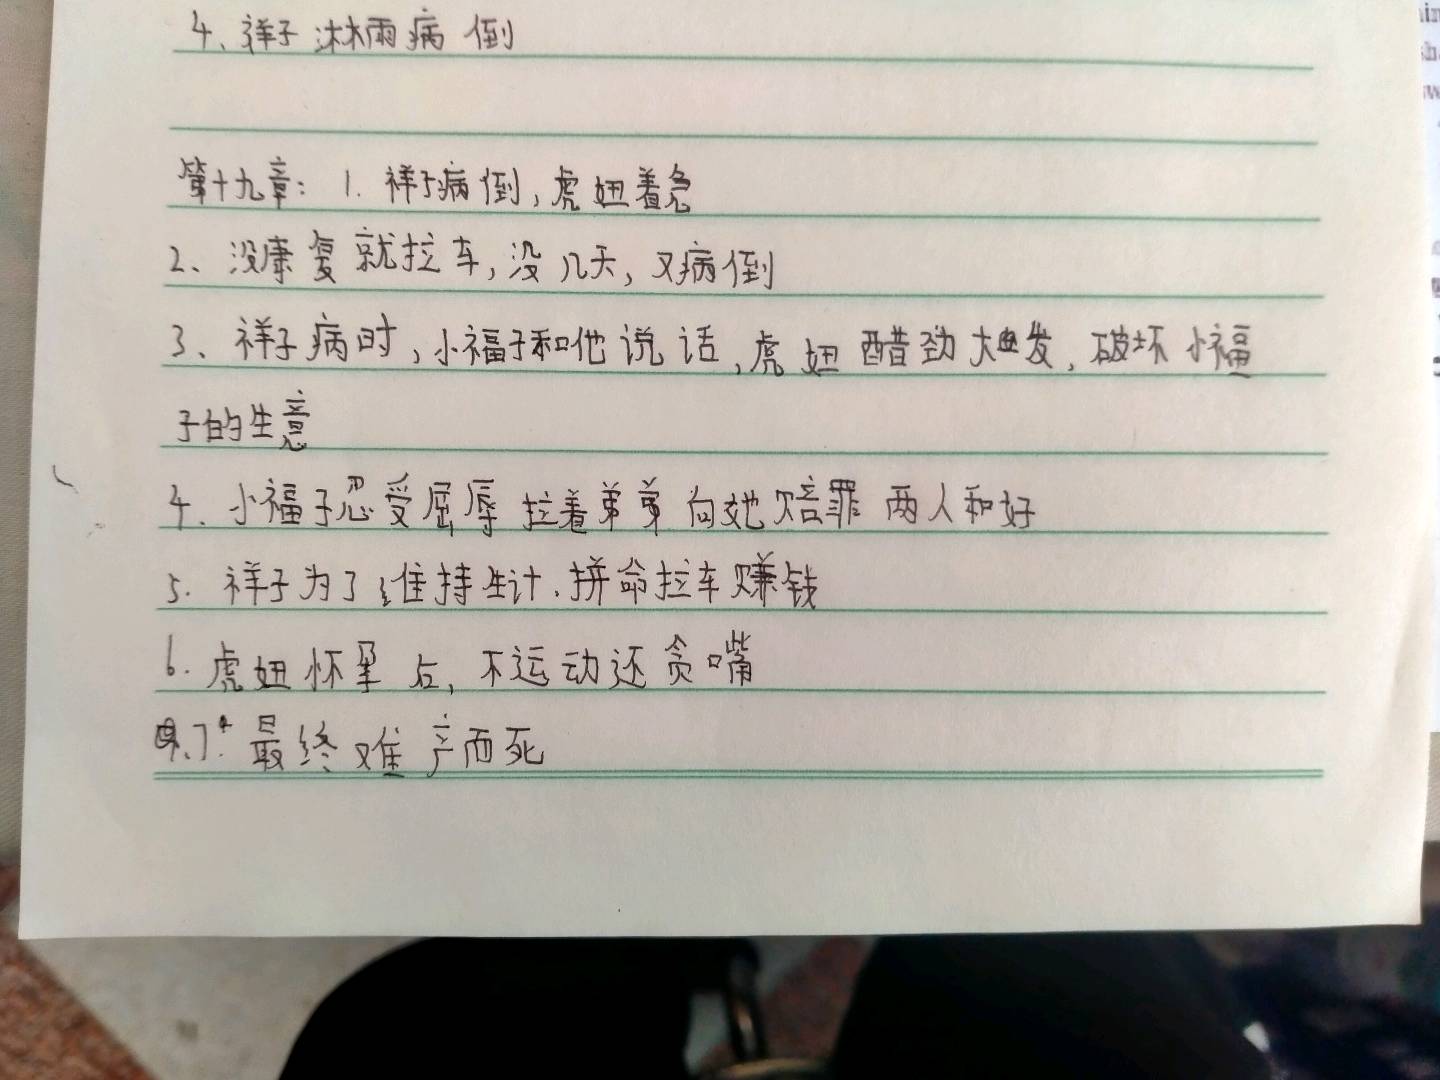 4、祥子淋雨病倒
第十九章：1. 祥子病倒，虎妞着急
2、没康复就拉车，没几天，又病倒
3、祥子病时，小福子和他说话，虎妞醋劲大发，破坏小福
子的生意
4、小福子忍受屈辱拉着弟弟向她赔罪两人和好
5. 祥子为了维持生计.拼命拉车赚钱
6. 虎妞怀孕后，不运动还贪嘴
7. 最终难产而死